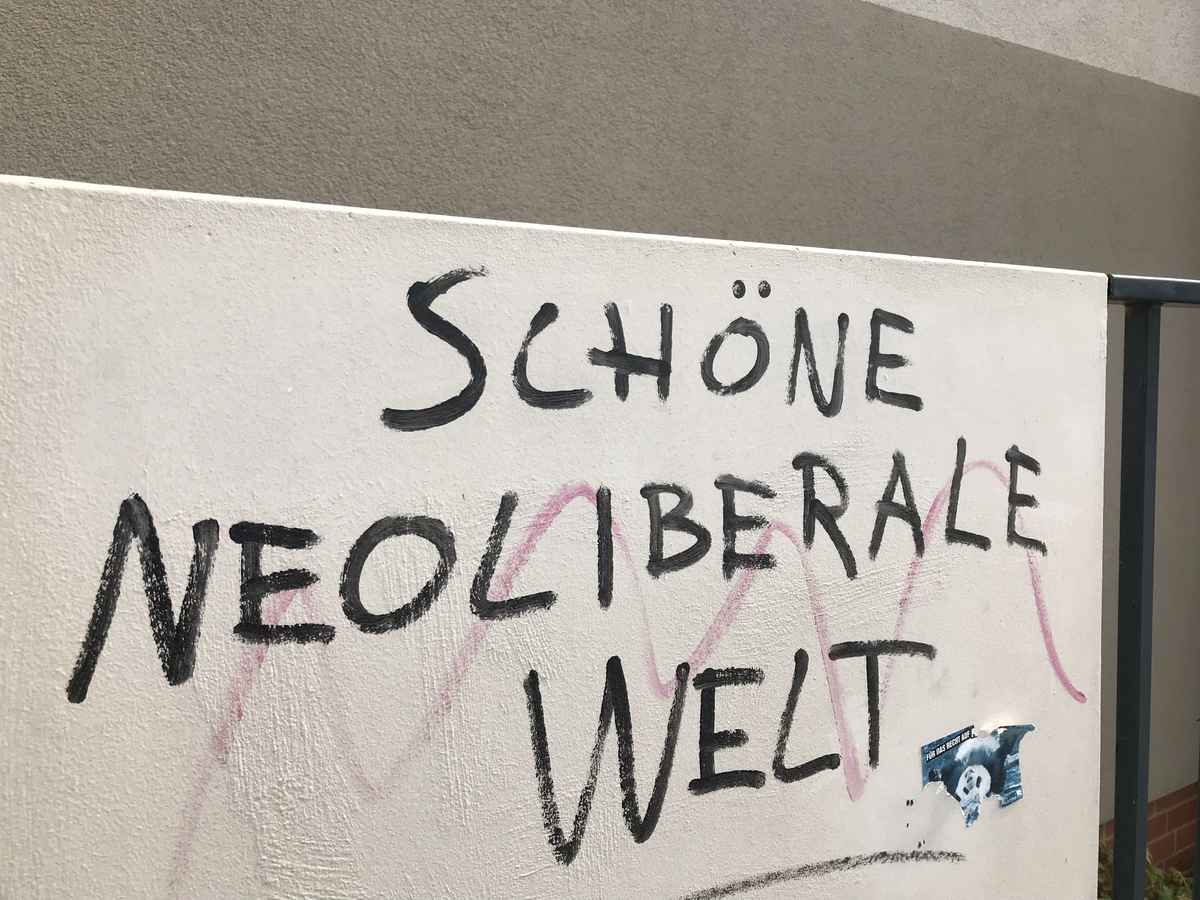 SCHÖNE
NEOLIBERALE
WELT
FÜR DAS RECHT AUF